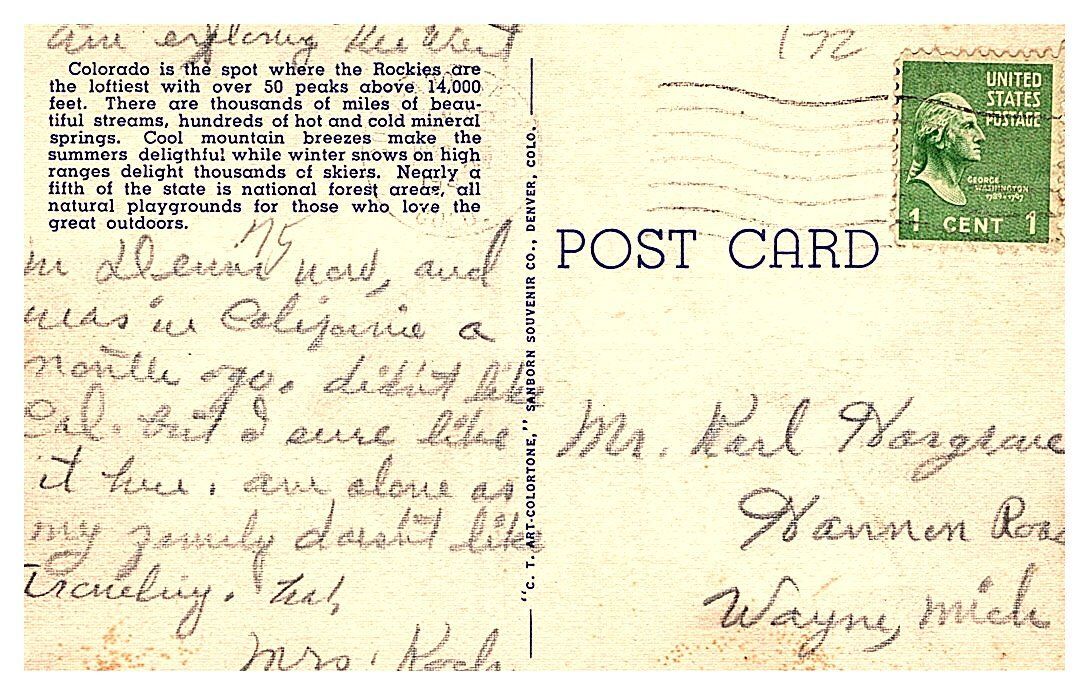 am exploring the West
Colorado is the spot where the Rockies are
the loftiest with over 50 peaks above 14,000
feet. There are thousands of miles of beau-
tiful streams, hundreds of hot and cold mineral
springs. Cool mountain breezes make the
summers deligthful while winter snows on high
ranges delight thousands of skiers. Nearly a
fifth of the state is national forest areas, all
natural playgrounds for those who love the
great outdoors.
in Denver now, and
was in California a
month ago. didn't like
Cal. but I sure like
it here. am alone as
my family doesn't like
traveling.
Mrs. Koch.
"C. T. ART-COLORTONE," SANBORN SOUVENIR CO., DENVER, COLO.
172
UNITED
STATES
POSTAGE
GEORGE
WASHINGTON
1789-1797
1 CENT 1
POST CARD
Mr. Karl Hargrave
Hannan Road
Wayne, Mich